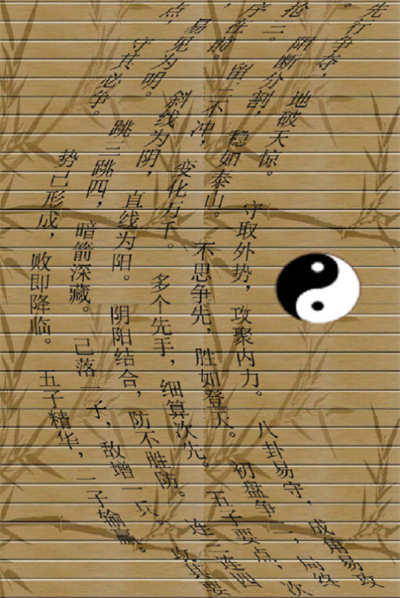 先行争夺，地破天惊。守取外势，攻聚内力。八卦易守，成角易攻
阻断分割，稳如泰山。不思争先，胜如登天。初盘争二，终局
抢三。留三不冲，变化万千。多个先手，细算次先。五子要点，次
序在前。斜线为阴，直线为阳。阴阳结合，防不胜防。连三连四
易见为明。跳三跳四，暗箭深藏。己落一子，敌增一兵，攻其要
点，守其必争。势已形成，败即降临。五子精华，一子输赢。